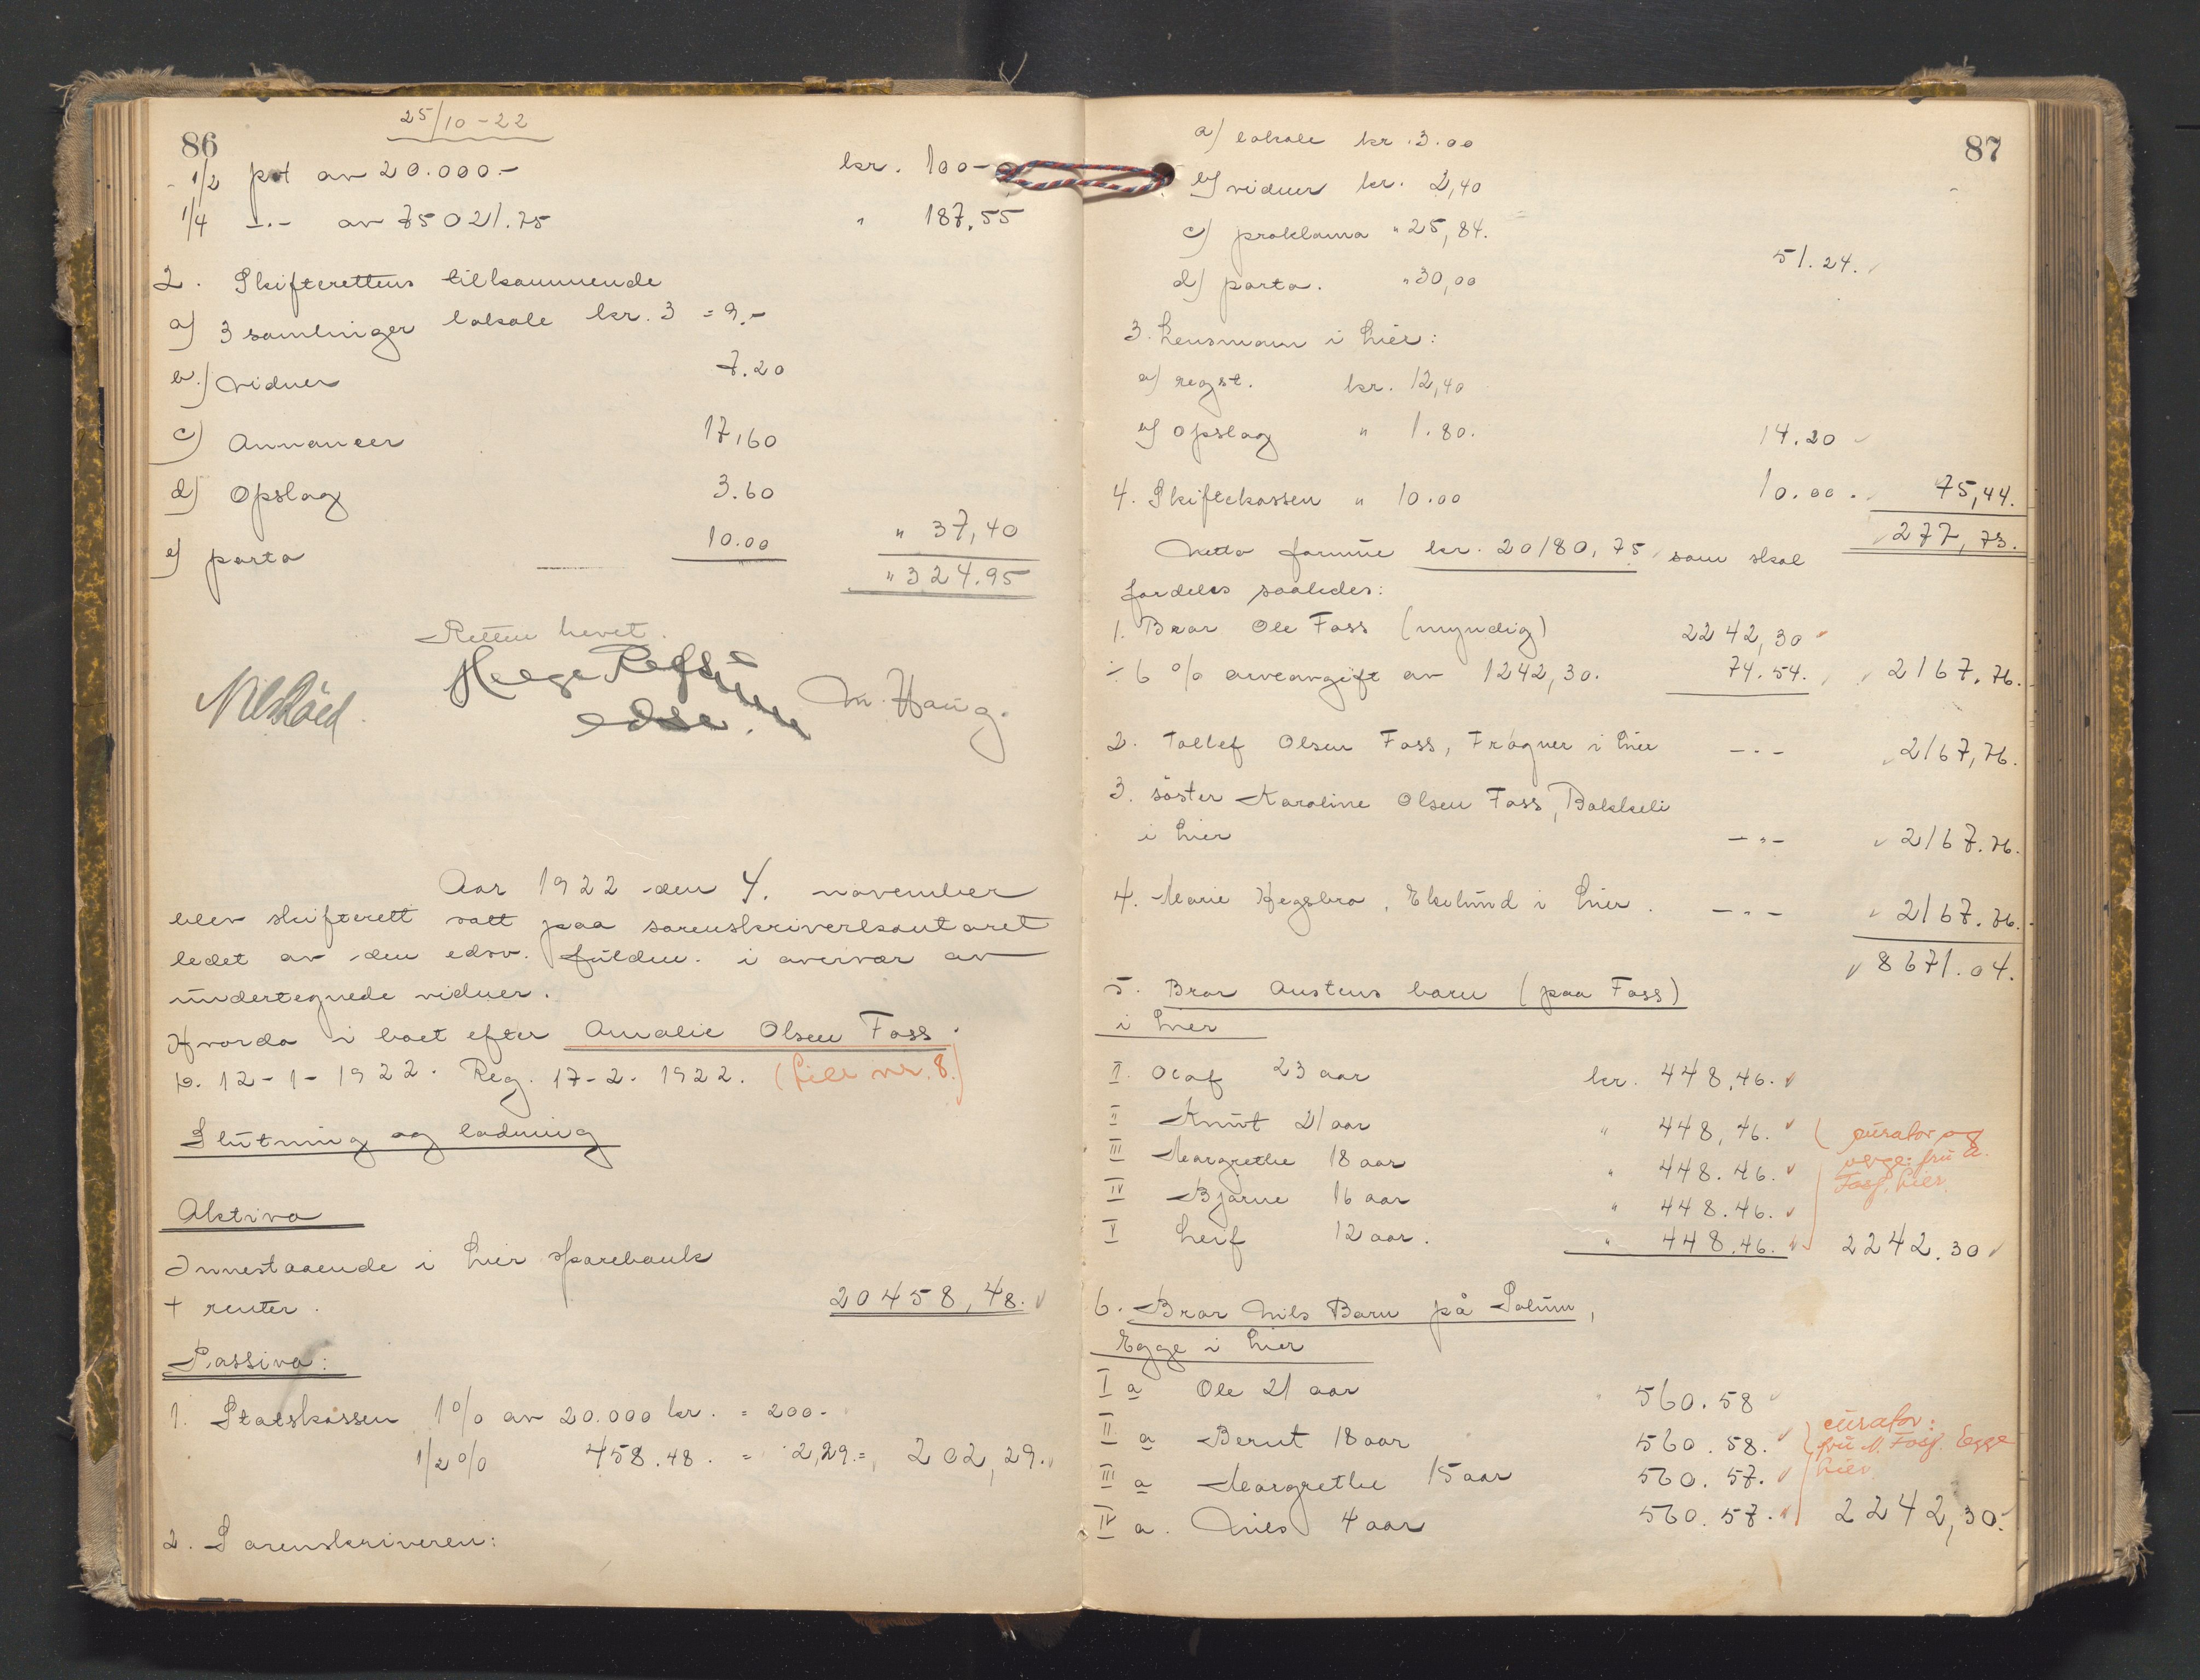 86
25/10-22
1/2 pct av 20.000.- kr. 100-
1/4 -.- av 75021.75 " 187.55
2. Skifterettens tilkommende
a) 3 samlinger lokale kr. 3 = 9.-
b) Vidner 7.20
c) Annoncer 17,60
d) Opslag 3.60
e) porto 10.00 " 37,40
" 324.95
Retten hevet.
Helge Refsum
edsv.
M. Haug.
Aar 1922 den 4. november
blev skifterett satt paa sorenskriverkontoret
ledet av den edsv. fuldm. i overvær av
undertegnede vidner.
Hvorda i boet efter Amalie Olsen Foss.
D. 12-1-1922. Reg. 17-2-1922. (Lier nr. 8.)
Slutning og lodning
Aktiva
Innestaaende i Lier Sparebank
+ renter. 20458,48.
Passiva:
1. Statskassen 1% av 20.000 kr. = 200-
1/2% 458.48. = 2,29 = 202,29.
2. Sorenskriveren:
87
a) lokale kr. 3.00
b) vidner kr. 2,40
c) proklama " 25,84.
d) porto. " 30,00
51.24.
3. Lensmann i Lier:
a) regst. kr. 12,40
b) Opslag " 1.80.
14.20
4. Skiftekassen " 10.00 10.00. 75,44.
277,73.
Netto formue kr. 20180,75 som skal
fordeles saaledes:
1. Bror Ole Foss (myndig) 2242,30
÷ 6 % arveavgift av 1242,30. 74.54. 2167.76.
2. Tollef Olsen Foss, Frogner i Lier -.- 2167,76.
3. söster Karoline Olsen Foss, Bakkeli
i Lier -"- 2167.76.
4. Marie Hegsbro, Ekelund i Lier. -.- 2167.76.
8671.04.
5. Bror Austens barn (paa Foss)
i Lier
I Olaf 23 aar kr. 448.46.
II Knut 21 aar " 448,46.
III Margrethe 18 aar " 448.46.
IV Bjarne 16 aar " 448.46.
V Leif 12 aar. " 448.46. 2242.30
curator og
verge: fru A.
Foss, Lier
6. Bror Nils Barn på Solum,
Egge i Lier
I a Ole 21 aar " 560.58
II a Bernt 18 aar 560.58.
III a Margrethe 15 aar 560.57.
IV a. Nils 4 aar 560.57. 2242,30.
curator:
fru N. Foss. Egge
Lier